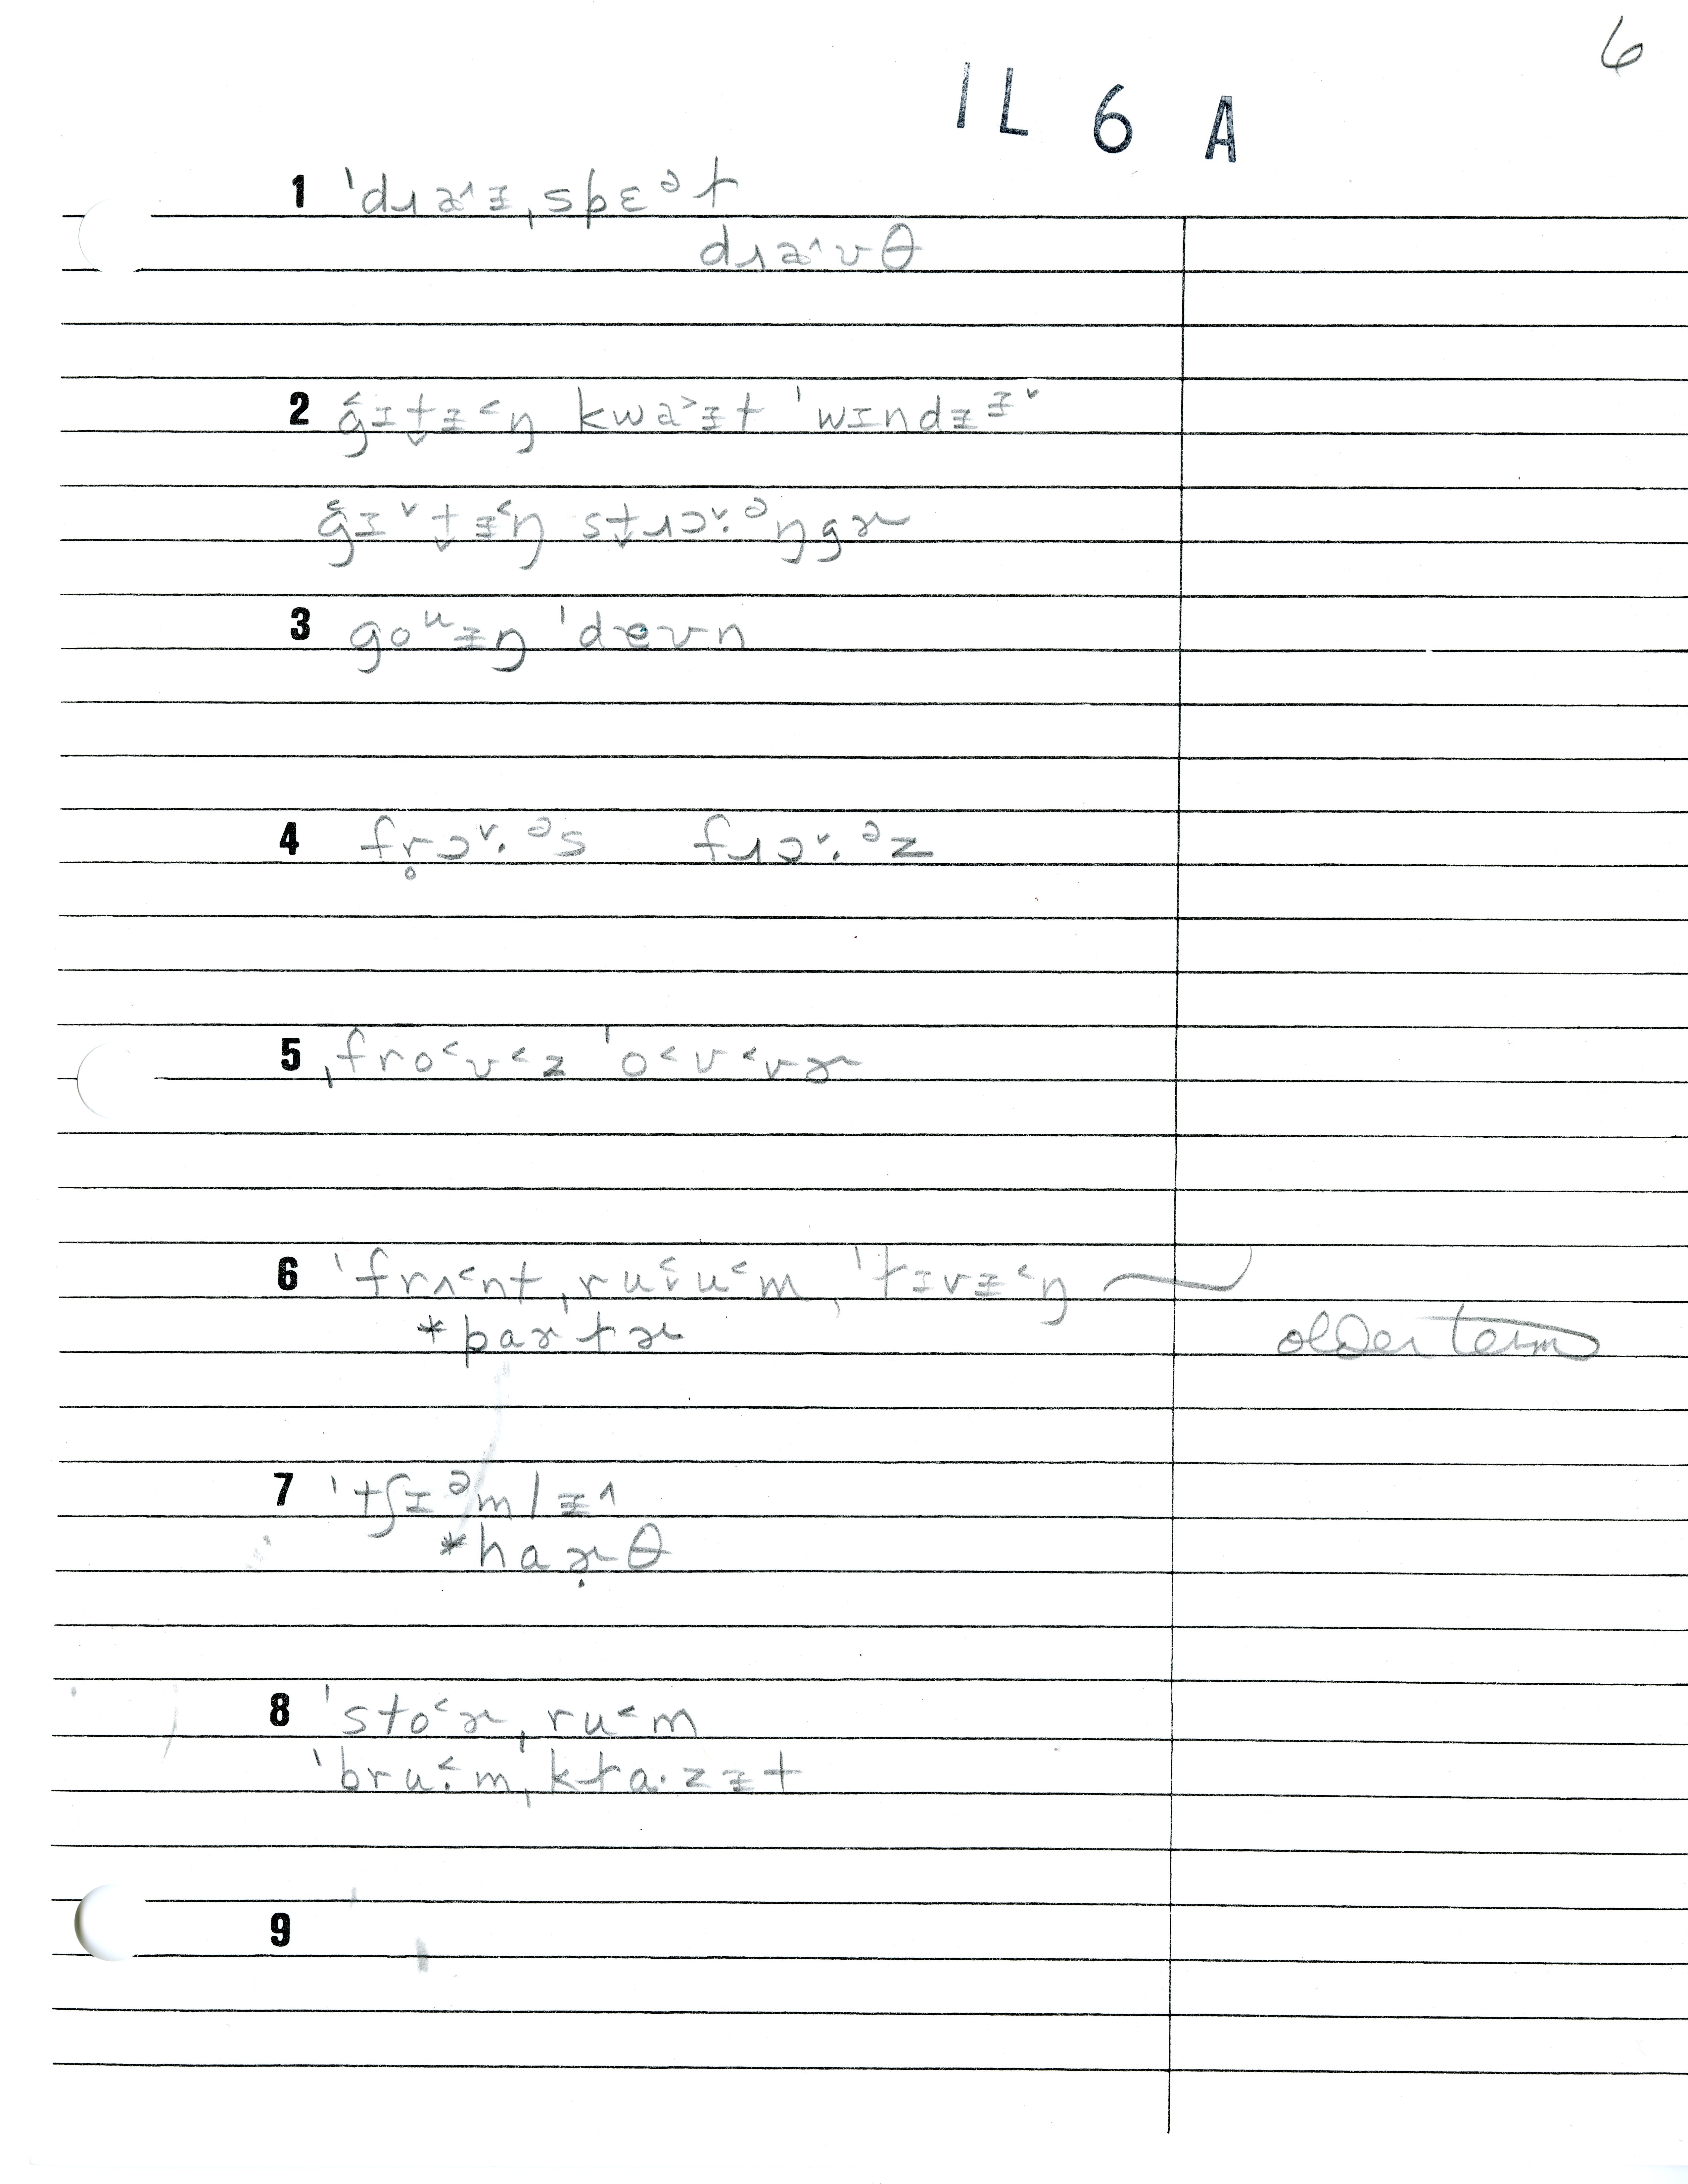 6
IL 6 A
1 ˈdɹaᶺɨˌspɛᵊt
dɹaᶺʊθ
2 g̬ɪt̬ɨ˂ŋ kwa˃ɨt ˈwɪndɨɨ˅
g̬ɪ˅t̬ɨ˂ŋ st̬ɹɔ˅·ᵊŋgɚ
3 goᵘɨŋ ˈdeʊn
4 fr̥ɔ˅·ᵊs fɹɔ˅·ᵊz
5 ˌfro˂ʊ˂z ˈo˂ʊ˂vɚ
6 ˈfrʌ˂nt ˌru˂u˂m, ˈlɪvɨ˂ŋ ~
*parlɚ older term
7 ˈtʃɪᵊmlɨᶺ
*haɚ̣θ
8 ˈsto˂ɚˌru˂m
ˈbru˂·mˌkla·zɨt
9